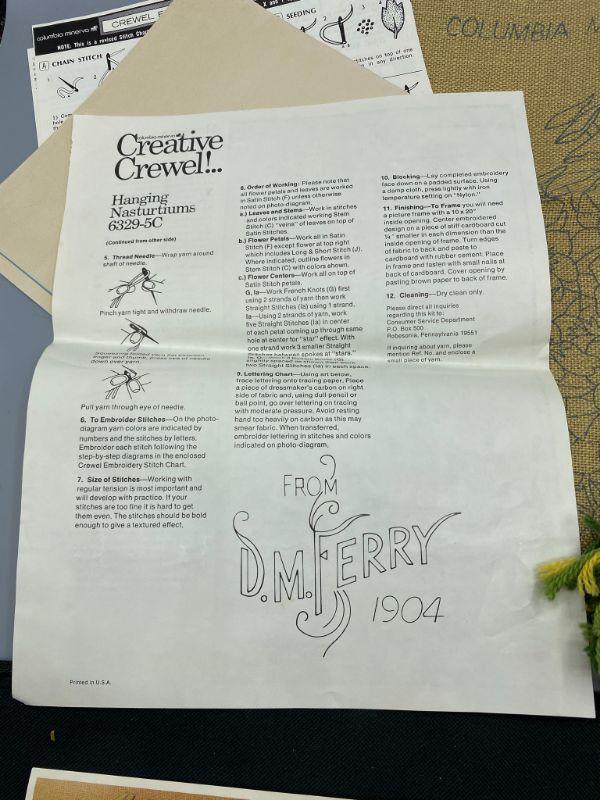 columbia minerva
CREWEL E
NOTE: This is a revised Stitch Char
A CHAIN STITCH
SEEDING
stitches on top of one
in any direction.
COLUMBIA M
columbia-minerva
Creative
Crewel!..
Hanging
Nasturtiums
6329-5C
(Continued from other side)
5. Thread Needle—Wrap yarn around
shaft of needle.
Pinch yarn tight and withdraw needle.
Squeezing folded yarn between
finger and thumb, press eye of needle
down over yarn.
Pull yarn through eye of needle.
6. To Embroider Stitches—On the photo-
diagram yarn colors are indicated by
numbers and the stitches by letters.
Embroider each stitch following the
step-by-step diagrams in the enclosed
Crewel Embroidery Stitch Chart.
7. Size of Stitches—Working with
regular tension is most important and
will develop with practice. If your
stitches are too fine it is hard to get
them even. The stitches should be bold
enough to give a textured effect.
8. Order of Working: Please note that
all flower petals and leaves are worked
in Satin Stitch (F) unless otherwise
noted on photo-diagram.
a.) Leaves and Stems—Work in stitches
and colors indicated working Stem
Stitch (C) "veins" of leaves on top of
Satin Stitches.
b.) Flower Petals—Work all in Satin
Stitch (F) except flower at top right
which includes Long & Short Stitch (J).
Where indicated, outline flowers in
Stem Stitch (C) with colors shown.
c.) Flower Centers—Work all on top of
Satin Stitch petals.
G, Ia—Work French Knots (G) first
using 2 strands of yarn then work
Straight Stitches (Ia) using 1 strand.
Ia—Using 2 strands of yarn, work
five Straight Stitches (Ia) in center
of each petal coming up through same
hole at center for "star" effect. With
one strand work 3 smaller Straight
Stitches between spokes at "stars."
slightly spaced as shown then work
two Straight Stitches (Ia) in each space.
9. Lettering Chart—Using art below,
trace lettering onto tracing paper. Place
a piece of dressmaker's carbon on right
side of fabric and, using dull pencil or
ball point, go over lettering on tracing
with moderate pressure. Avoid resting
hand too heavily on carbon as this may
smear fabric. When transferred,
embroider lettering in stitches and colors
indicated on photo-diagram.
10. Blocking—Lay completed embroidery
face down on a padded surface. Using
a damp cloth, press lightly with iron
temperature setting on "Nylon."
11. Finishing—To Frame you will need
a picture frame with 10 x 20"
inside opening. Center embroidered
design on a piece of stiff cardboard cut
¼" smaller in each dimension than the
inside opening of frame. Turn edges
of fabric to back and paste to
cardboard with rubber cement. Place
in frame and fasten with small nails at
back of cardboard. Cover opening by
pasting brown paper to back of frame.
12. Cleaning—Dry clean only.
Please direct all inquiries
regarding this kit to:
Consumer Service Department
P.O. Box 500
Robesonia, Pennsylvania 19551
If inquiring about yarn, please
mention Ref. No. and enclose a
small piece of yarn.
FROM
D.M. FERRY
1904
Printed in U.S.A.